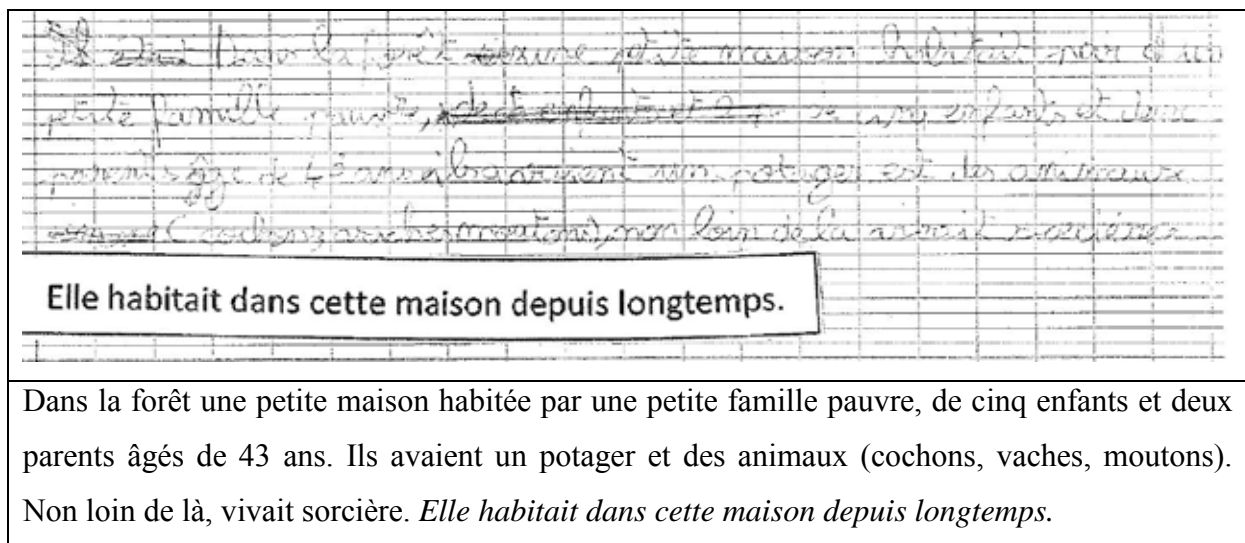 Dans la forêt une petite maison habitait par une
petite famille pauvre, enfants et deux
parents âge de 43 ans un potager est des animaux
(cochons, vaches, moutons), non loin de la vivait sorcière
Elle habitait dans cette maison depuis longtemps.
Dans la forêt une petite maison habitée par une petite famille pauvre, de cinq enfants et deux
parents âgés de 43 ans. Ils avaient un potager et des animaux (cochons, vaches, moutons).
Non loin de là, vivait sorcière. Elle habitait dans cette maison depuis longtemps.